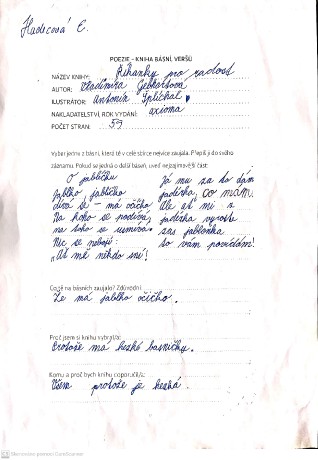 Hadicová E.
POEZIE - KNIHA BÁSNÍ, VERŠŮ
NÁZEV KNIHY: Říkanky pro radost
AUTOR: Vladimíra Gebhartová
ILUSTRÁTOR: Antonín Šplíchal
NAKLADATELSTVÍ, ROK VYDÁNÍ: axioma
POČET STRAN: 59
Vyber jednu z básní, která tě v celé sbírce nejvíce zaujala. Přepiš ji do svého
záznamu. Pokud se jedná o delší báseň, uveď nejzajímavější část:
O jablíčku
Jablko jablíčko
dívá se - má očičko
Na koho se podívá,
na toho se usmívá.
Nic se nebojí:
"Ať mě nikdo sní!
Já mu za to dám
jadérka, co mám.
Ale ať mi z
jadérka vyroste
zas jabloňka
to vám povídám!
Co tě na básních zaujalo? Zdůvodni
Že má jablko očičko.
Proč jsem si knihu vybral/a:
Protože má hezké básničky.
Komu a proč bych knihu doporučil/a:
Všem protože je hezká.